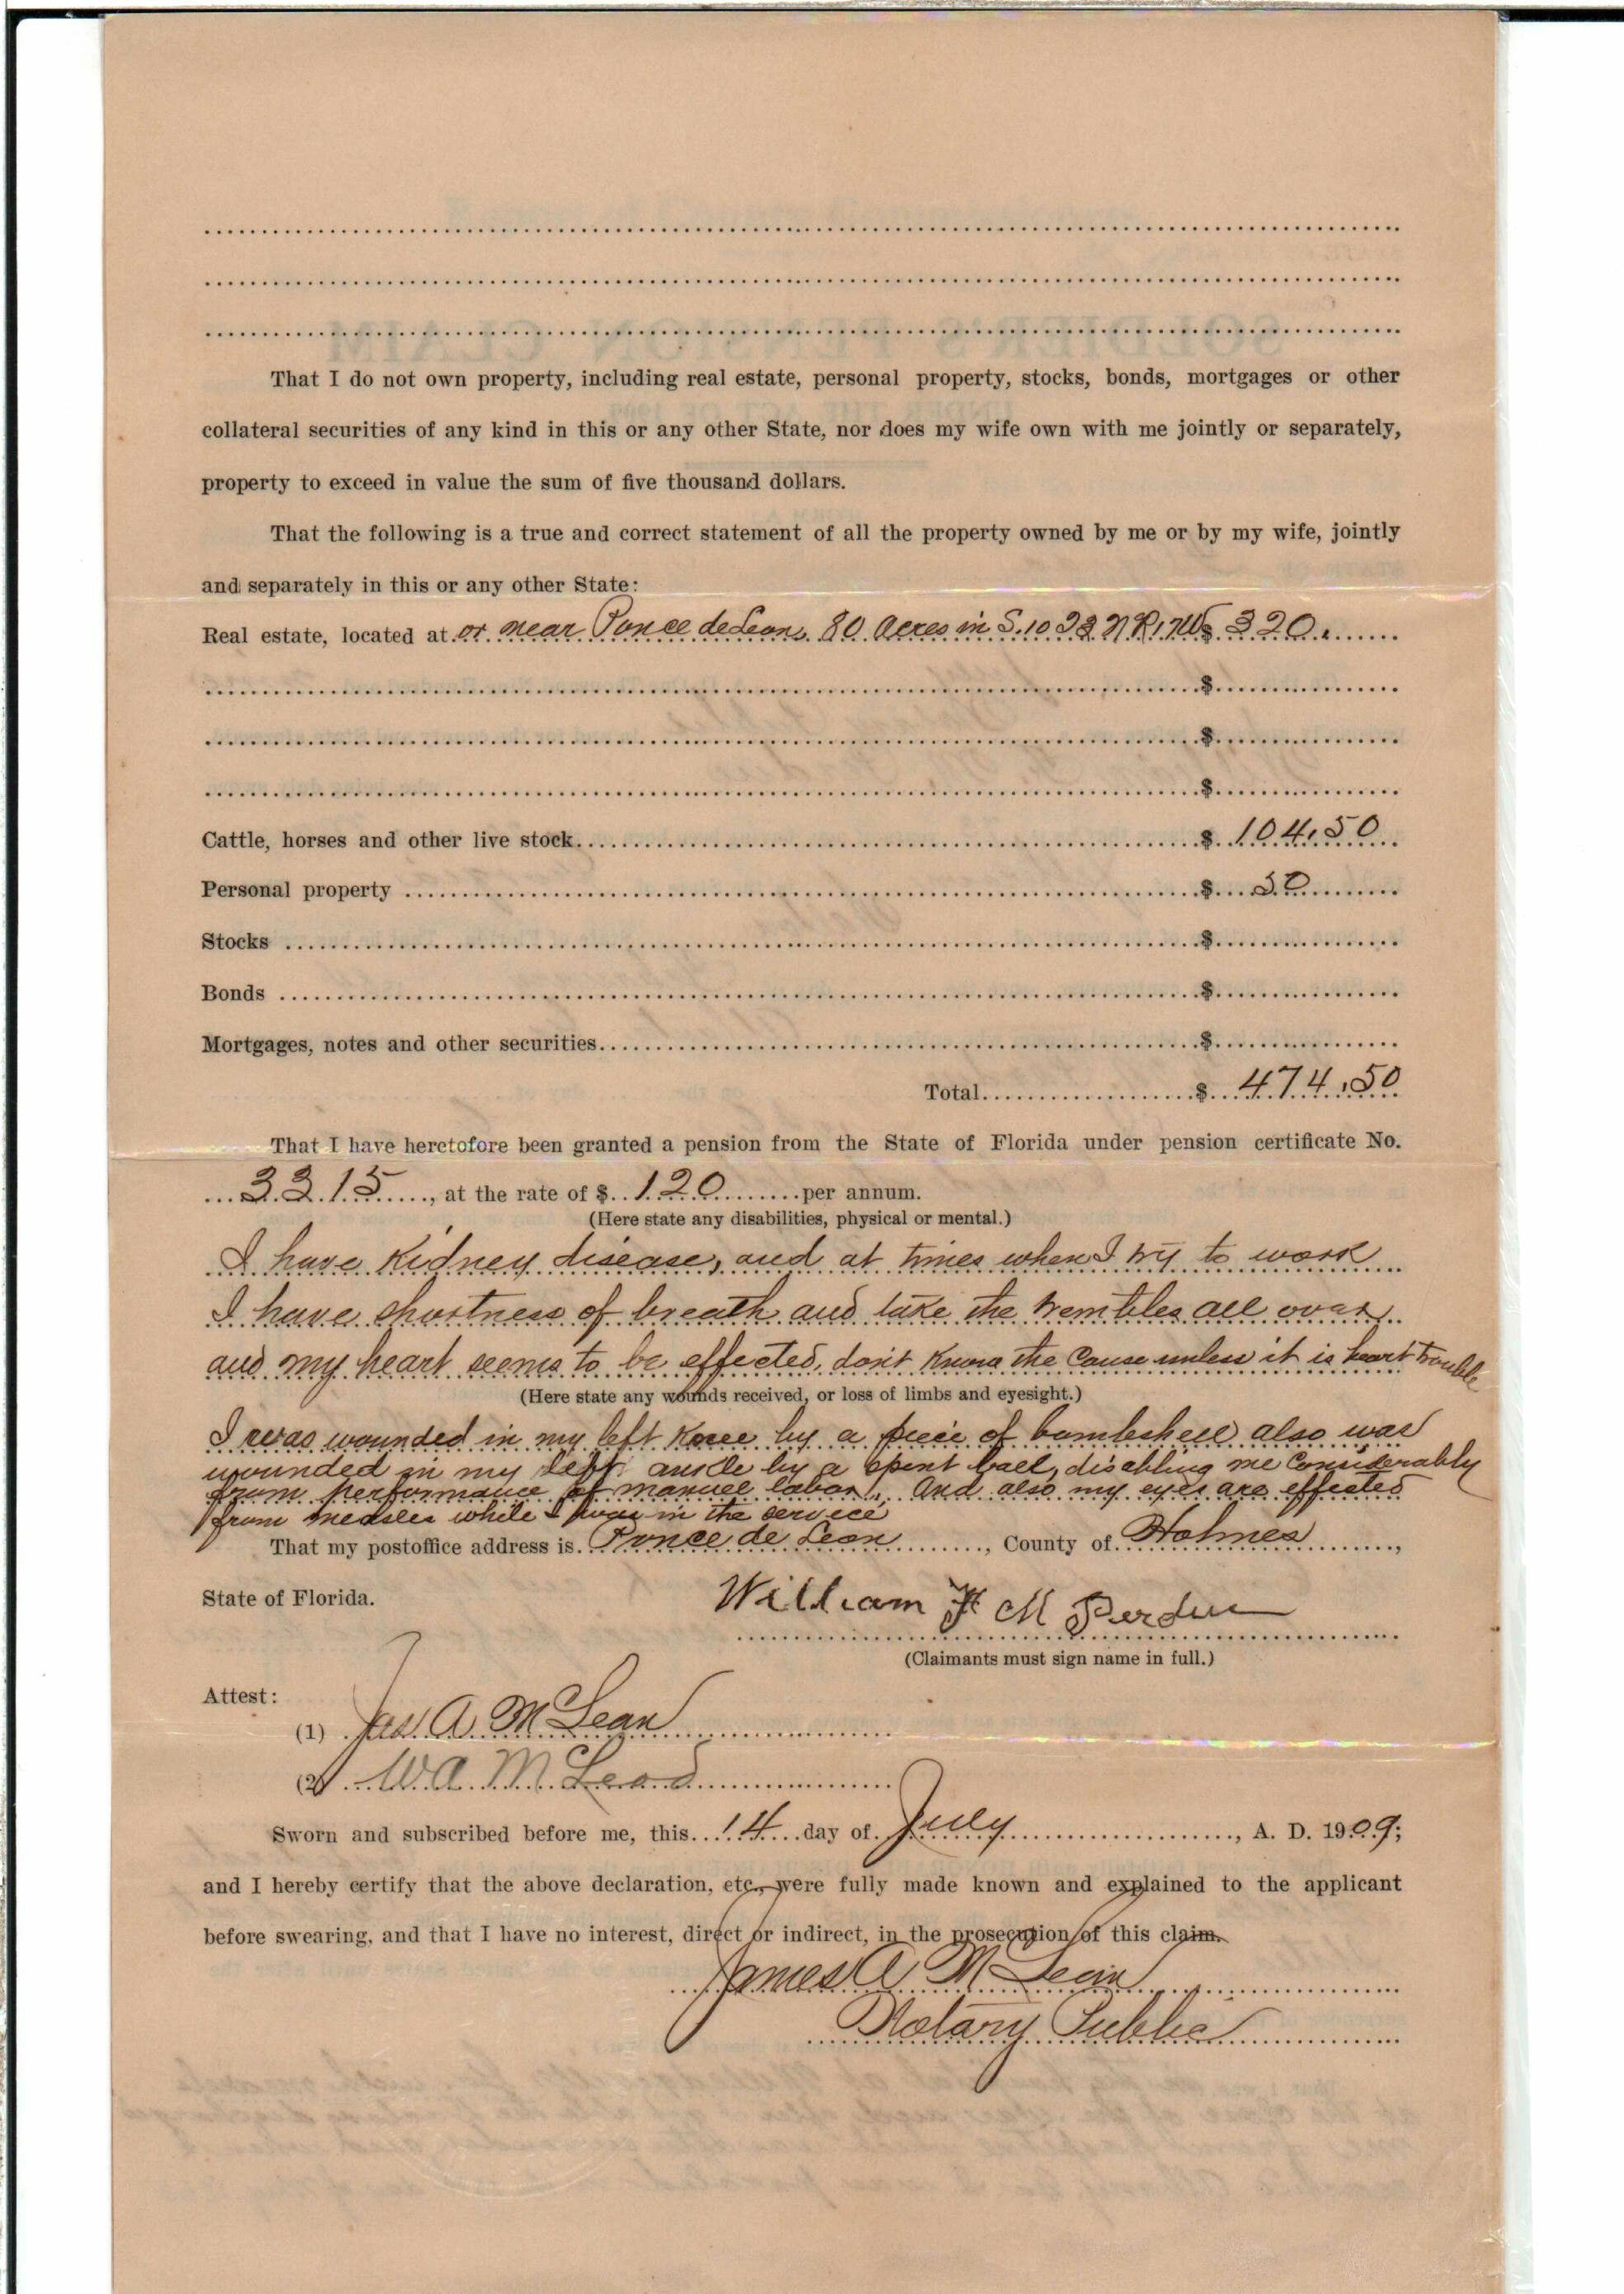 That I do not own property, including real estate, personal property, stocks, bonds, mortgages or other
collateral securities of any kind in this or any other State, nor does my wife own with me jointly or separately,
property to exceed in value the sum of five thousand dollars.
That the following is a true and correct statement of all the property owned by me or by my wife, jointly
and separately in this or any other State:
Real estate, located at or near Ponce de Leon, 80 Acres in S. 10 $ 320.
$
$
$
Cattle, horses and other live stock $ 104.50
Personal property $ 50
Stocks $
Bonds $
Mortgages, notes and other securities $
Total $ 474.50
That I have heretofore been granted a pension from the State of Florida under pension certificate No.
3315, at the rate of $ 120 per annum.
(Here state any disabilities, physical or mental.)
I have Kidney disease, and at times when I try to work
I have shortness of breath and take the trembles all over
and my heart seems to be effected, don't know the cause unless it is heart trouble
(Here state any wounds received, or loss of limbs and eyesight.)
I was wounded in my left knee by a piece of bombshell also was
wounded in my left ankle by a spent ball, disabling me considerably
from performance of manuel labor. And also my eyes are effected
from measles while I was in the service
That my postoffice address is Ponce de Leon, County of Holmes,
State of Florida.
William F M Perdue
(Claimants must sign name in full.)
Attest:
(1) Jas. A. McLean
(2) W. A. McLeod
Sworn and subscribed before me, this 14 day of July, A. D. 1909;
and I hereby certify that the above declaration, etc., were fully made known and explained to the applicant
before swearing, and that I have no interest, direct or indirect, in the prosecution of this claim.
James A McLean
Notary Public